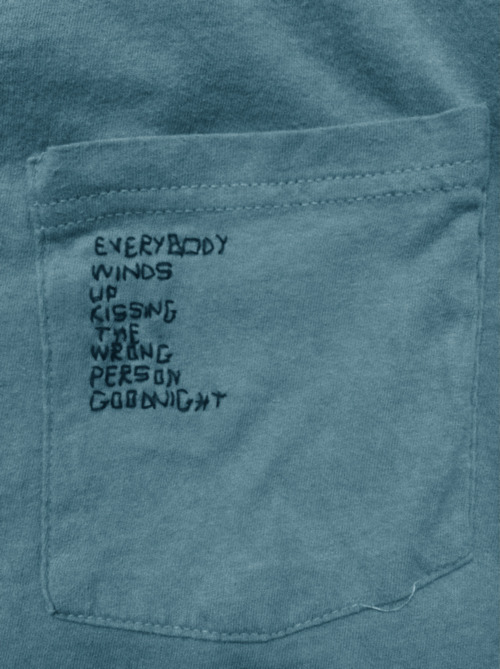 EVERYBODY
WINDS
UP
KISSING
THE
WRONG
PERSON
GOODNIGHT